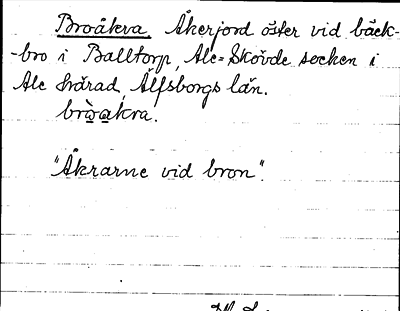 Broåkra Åkerjord öster vid bäck-
-bro i Balltorp, Ale=Skövde socken i
Ale härad, Älfsborgs län.
bròakra.
"Åkrarne vid bron".